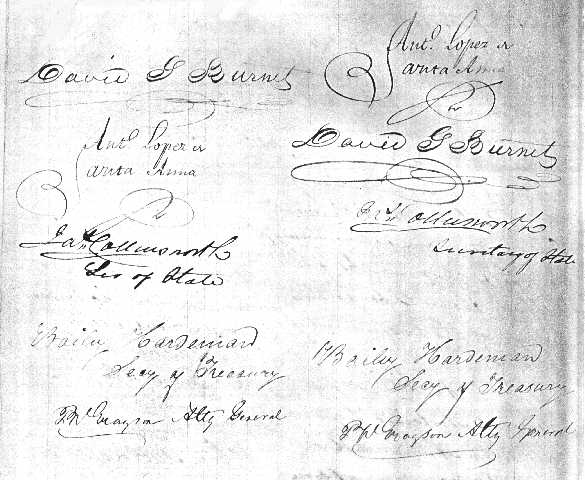 David G Burnet
Ant.º Lopez d
Santa Anna
Jas Collinsworth
Sec of State
Baily Hardeman
Secy of Treasury
P W Grayson Atty General
Ant.º Lopez d
Santa Anna
David G Burnet
Jas Collinsworth
Secretary of State
Baily Hardeman
Secy of Treasury
P W Grayson Atty General